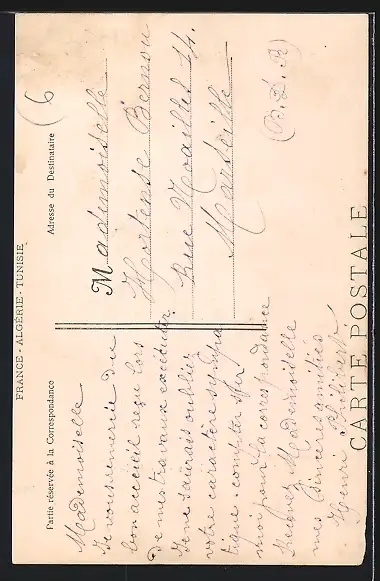 FRANCE - ALGÉRIE - TUNISIE
CARTE POSTALE
Partie réservée à la Correspondance
Adresse du Destinataire
Mademoiselle
Je vous remercie du
bon accueil reçu lors
de mes travaux exécutés.
Je ne saurais oublier
votre caractère sympa
tique. compter sur
moi pour la correspondance
Recevez Mademoiselle
mes sincères amitiés
Henri Philibert
(6
Mademoiselle
Hortense Bernou
Rue Noailles 14.
Marseille
(B. D. R)